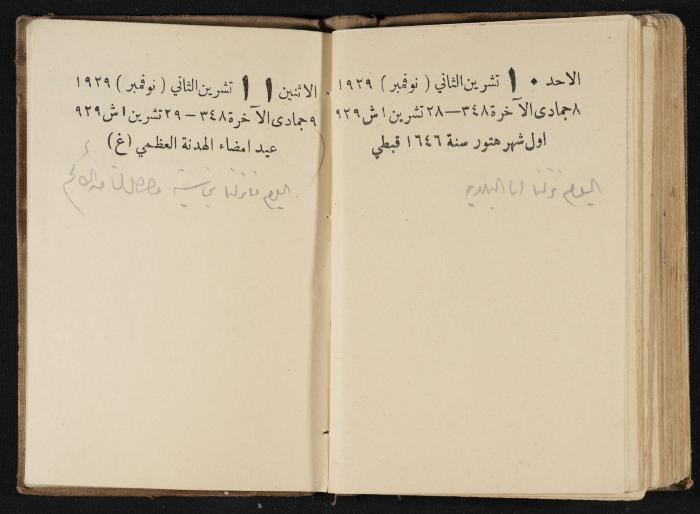 الاحد ١٠ تشرين الثاني ( نوفمبر ) ١٩٢٩
٨ جمادى الآخرة ٣٤٨ — ٢٨ تشرين ١ ش ٩٢٩
اول شهر هتور سنة ١٦٤٦ قبطي
اليوم نزلنا الى
الاثنين ١١ تشرين الثاني ( نوفمبر ) ١٩٢٩
٩ جمادى الآخرة ٣٤٨ – ٢٩ تشرين ١ ش ٩٢٩
عيد امضاء الهدنة العظمي (غ)
اليوم